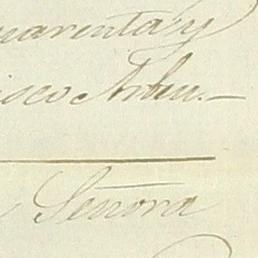 uarenta y
isco Arbu.—
Señora